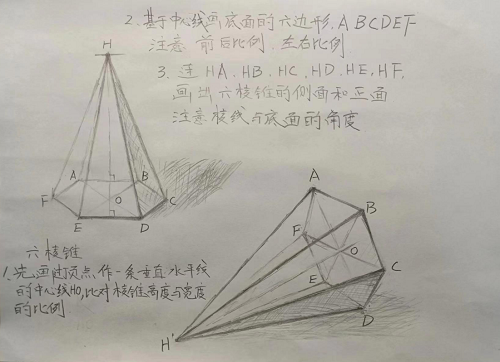 2.基于中心线画底面的六边形.ABCDEF
注意前后比例.左右比例
3.连HA.HB.HC.HD.HE.HF.
画出六棱锥的侧面和正面
注意棱线与底面的角度
H
A
B
F
O
C
E
D
六棱锥
1.先画过顶点作一条垂直水平线
的中心线HO,比对棱锥高度与宽度
的比例
A
B
F
O
E
C
D
H'